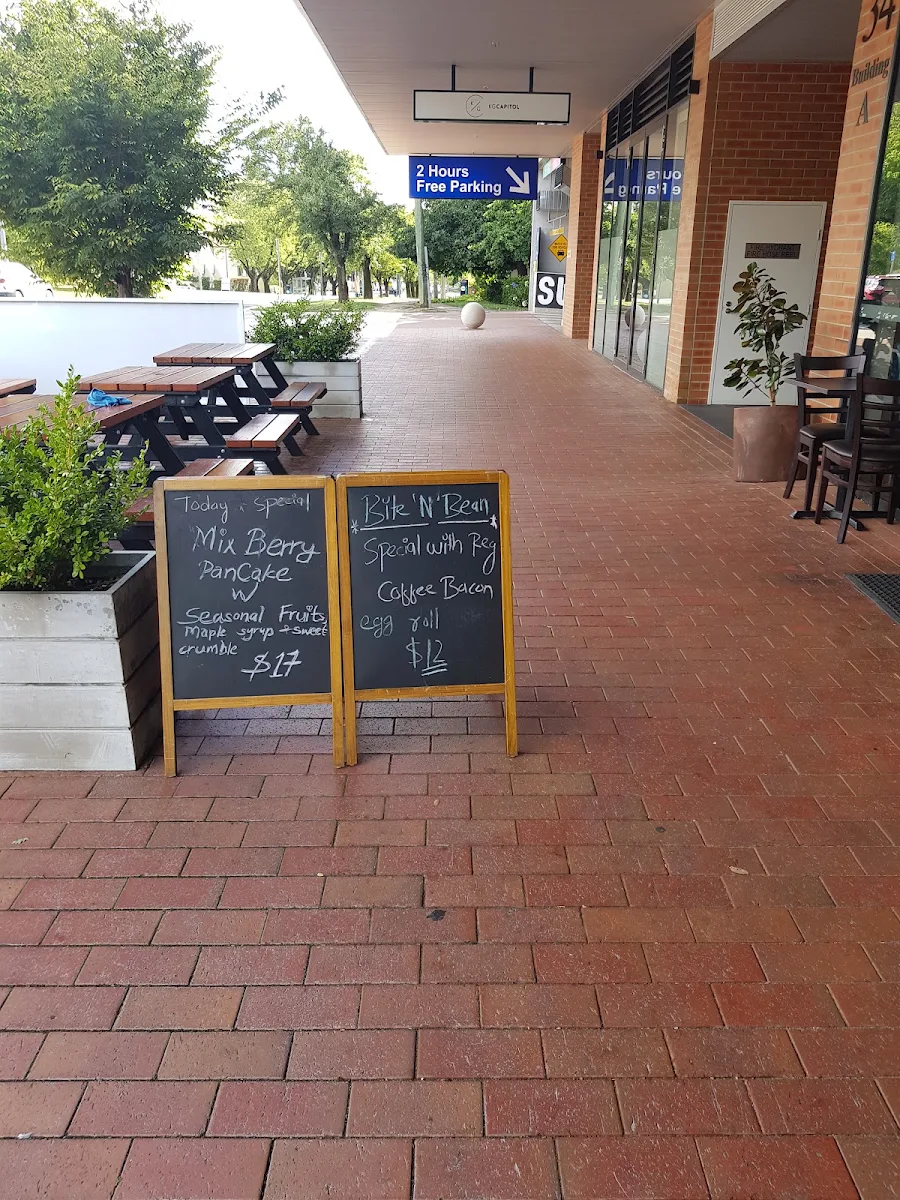 EGCAPITOL
2 Hours
Free Parking
34
Building
A
SU
Today , Special
Mix Berry
PanCake
W/
Seasonal Fruits,
Maple syrup + sweet
crumble
$17
Bite 'N' Bean
Special with Reg
Coffee Bacon
egg roll
$12